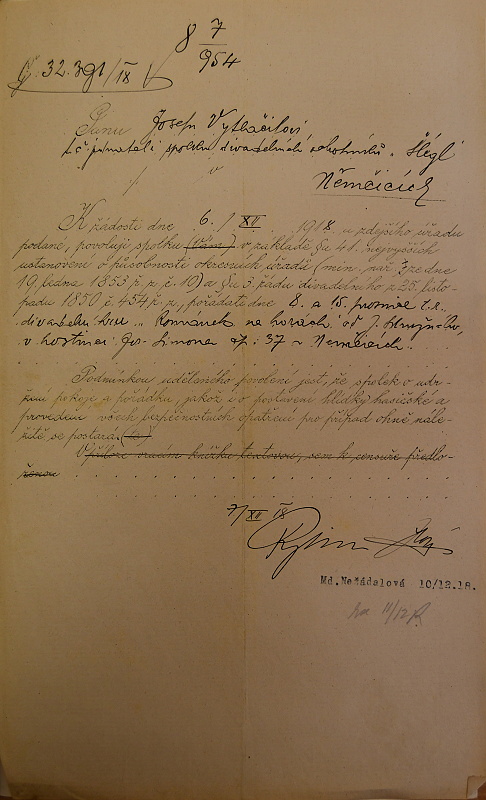 8 7/954
Č. 32.391/18
Pánu Josefu Vytlačilovi
t.č. jednateli spolku divadelních ochotníků
v
Němčicích
K žádosti dne 6./XII. 1918 u zdejšího úřadu
podané, povoluji spolku (Vám) v základě §u 41. nejvyšších
ustanovení o působnosti okresních úřadů (min. nař. ze dne
19. ledna 1853 ř. z. č. 10) a §u 3. řádu divadelního z 25. listo-
padu 1850 č. 454 ř. z., pořádati dne 8. a 15. prosince t.r.
divadelní hru „Románek na horách" od J.
v hostinci Jos. Šimona čp: 37 v Němčicích.
Podmínkou uděleného povolení jest, že spolek o udr-
žení pokoje a pořádku, jakož i o postavení hlídky hasičské a
provedení všech bezpečnostních opatření pro případ ohně nále-
žitě se postará (te)
V příloze vracím knížku textovou, sem k censuře předlo-
ženou
7/XII 18
Md. Nežádalová 10/12.18.
11/12